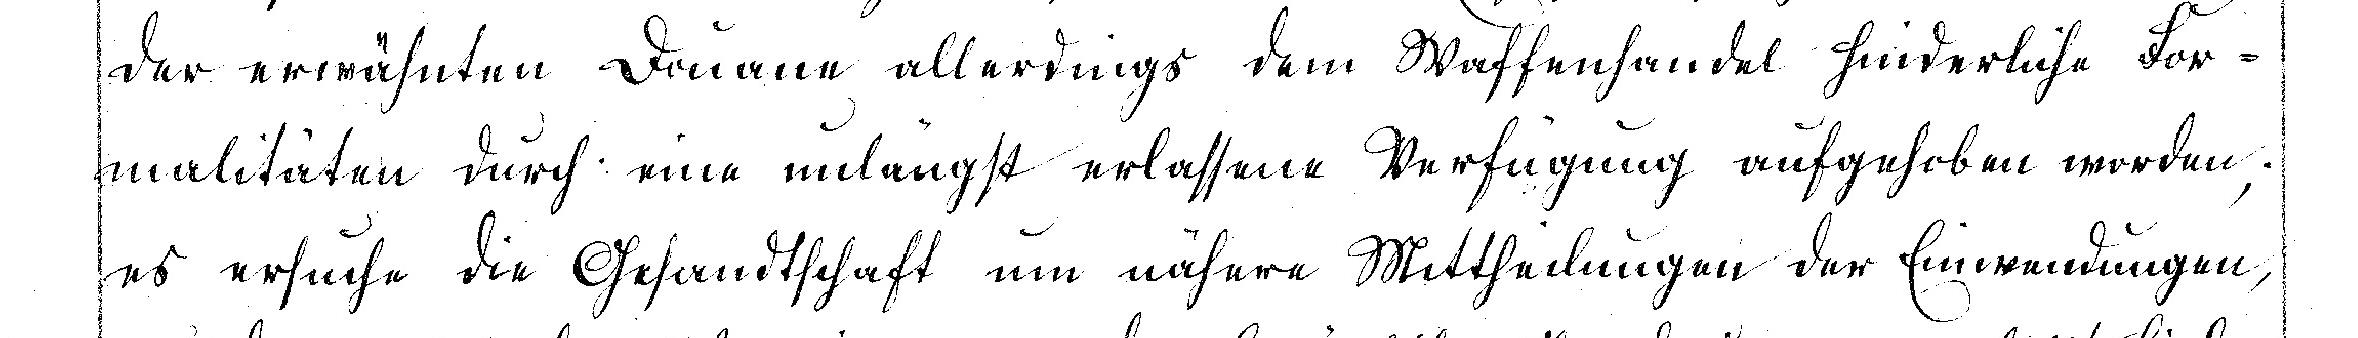 der erwähnten Douane allerdings dem Waffenhandel hinderliche For-
malitäten durch eine unlängst erlassene Verfügung aufgehoben worden;
es ersuche die Gesandtschaft um nähere Mittheilungen der Einwendungen,